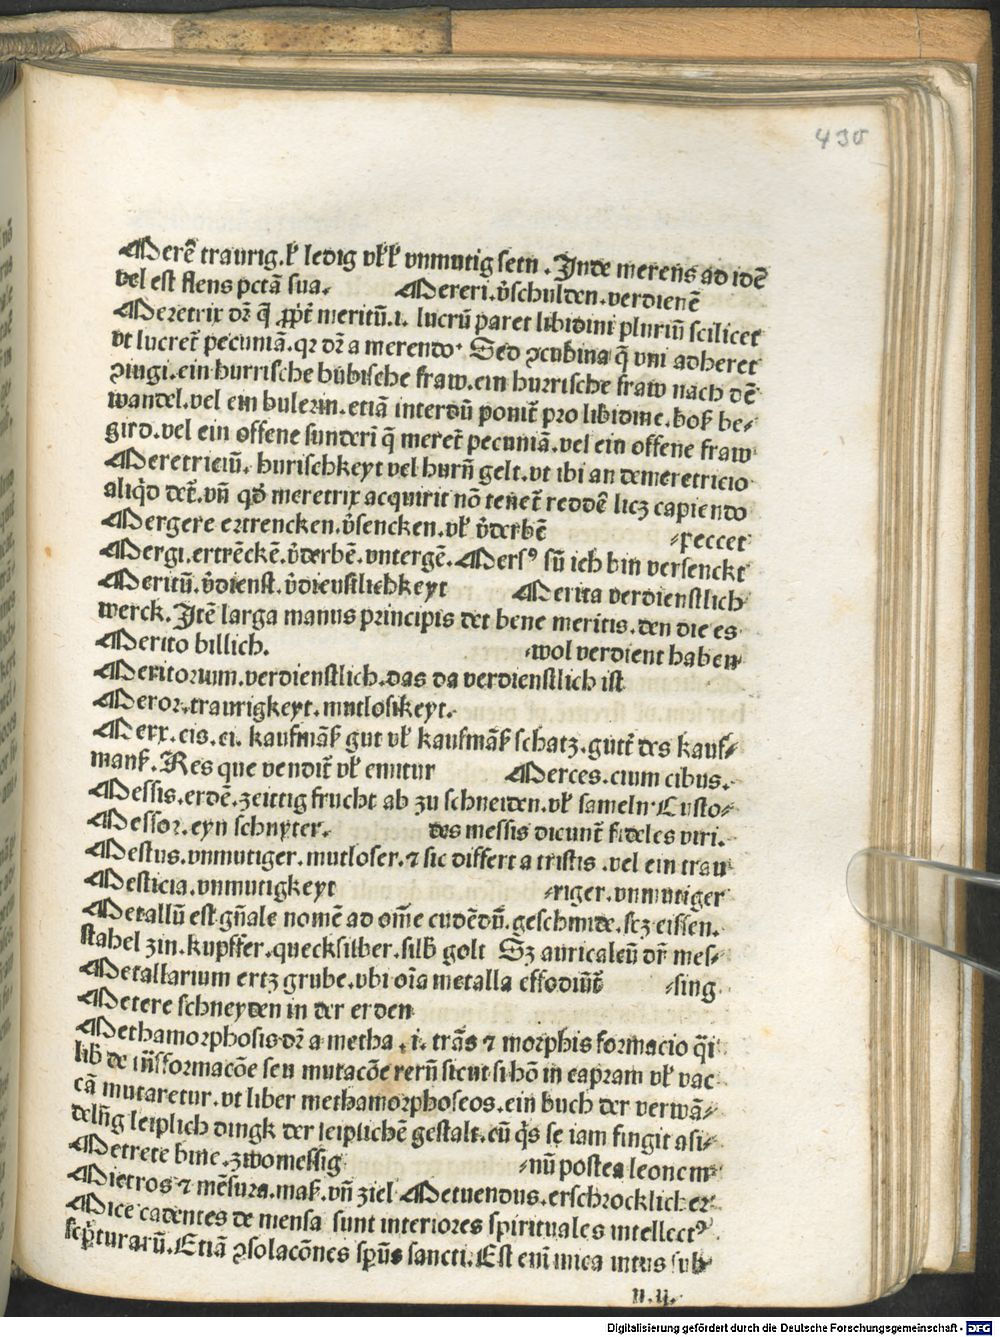 430
Merẽ traurig.ł ledig vłł vnmutig sein. Inde merens ad idẽ
vel est flens pctã sua. Mereri.v̉schulden.verdienẽ
Meretrix dr̃ q̃ ꝓp̃t meritũ.i. lucrũ paret libidini pluriũ scilicet
vt lucret̃ pecuniã.qꝛ dr̃ a merendo. Sed ꝯcubina q̃ vni adheret
ꝯiugi.ein hurrische hübische fraw.ein hurrische fraw nach dẽ
wandel.vel ein bulerin.etiã interdũ ponit̃ pro libidine.boß be⸗
gird.vel ein offene sunderĩ q̃ meret̃ pecuniã.vel ein offene fraw
Meretriciũ. hurischkeyt vel hurñ gelt.vt ibi an demeretricio
aliq̇d det̃.vñ qď meretrix acquirit nõ tenet̃ reddẽ licꝫ capiendo
Mergere ertrencken.v̉sencken.vł v̉derbẽ ⸗peccet
Mergi.ertrẽckẽ.v̉derbẽ.vntergẽ. Mersꝰ sũ ich bin versenckt
Meritũ.v̉dienst.v̉dienstlichkeyt Merita verdienstlich
werck. Itẽ larga manus principis det bene meritis.den die es
Merito billich. ⸗wol verdient haben
Meritorium.verdienstlich.das da verdienstlich ist
Meror.traurigkeyt.mutlosikeyt.
Merx.cis.ci. kaufmãß gut vł kaufmãß schatz.gutt̃ des kauf⸗
manß. Res que vendit̃ vł emitur Merces.cium cibus.
Messis.erdẽ.zeittig frucht ab zu schneiden.vł sameln. Custo⸗
Messor.eyn schnyter. des messis dicunt̃ fideles viri.
Mestus.vnmutiger.mutloser.⁊ sic differt a tristis .vel ein trau
Mesticia.vnmutigkeyt ⸗riger.vnmutiger
Metallũ est gñale nomẽ ad om̃e cudẽdũ.geschmide.scꝫ eissen.
stahel zin.kupffer.quecksilber.silb̉ golt Sꝫ auricaleũ dr̃ mes⸗
Metallarium ertz grube.vbi oĩa metalla effodiũt̃ ⸗sing
Metere schneyden in der erden
Methamorphosis dr̃ a metha .i. trãs ⁊ morphis formacio q̃i
lib̉ de trãsformacõe seu mutacõe rerũ sicut si hõ in capram vł vac
cã mutaretur.vt liber methamorphoseos.ein buch der verwã⸗
delũg leiplich dingk der leiplichẽ gestalt.cũ q̇s se iam fingit asi⸗
Metrete bine.zwomessig ⸗nũ postea leonem
Metros ⁊ mẽsura.maß.vñ ziel Metuendus.erschrocklicher
Mice cadentes de mensa sunt interiores spirituales intellectꝰ
scp̃turarũ.Etiã ꝯsolacõnes sp̃us sancti.Est eni mica intus sub
n.ij.
Digitalisierung gefördert durch die Deutsche Forschungsgemeinschaft - DFG